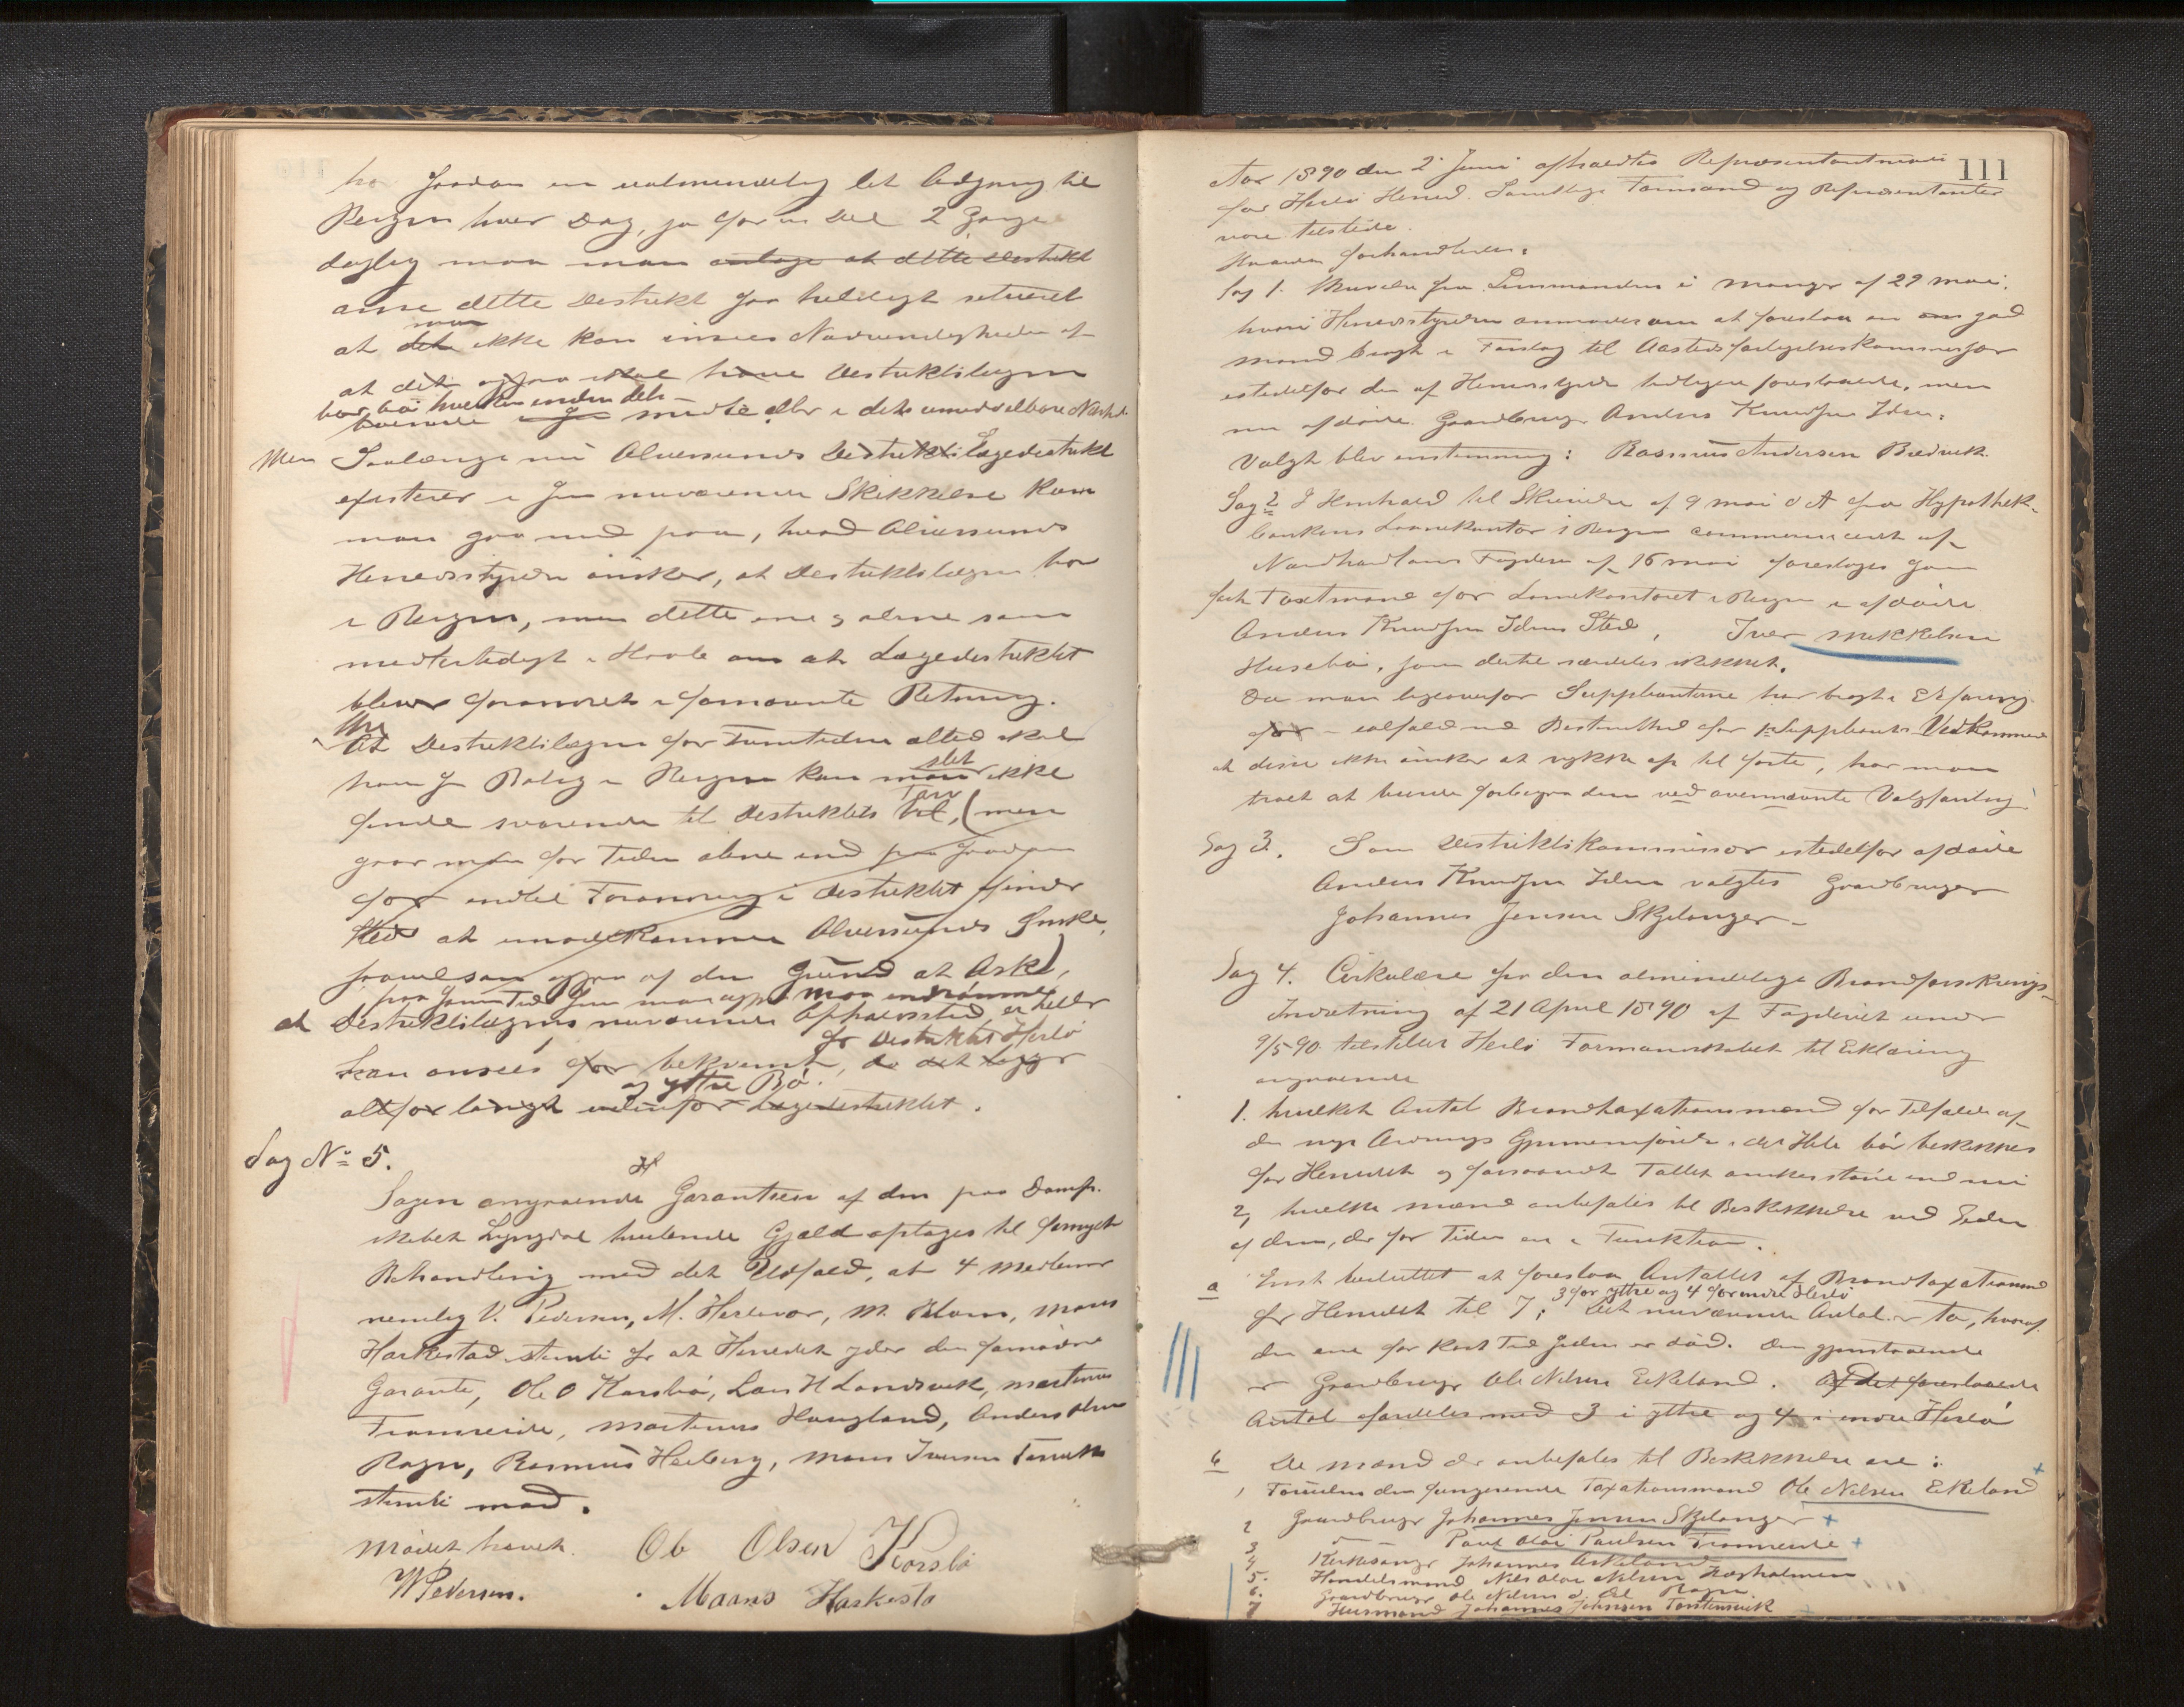 har saadan en ualmindelig let Adgang til
Bergen hver Dag, ja for en Del 2 Gange
daglig maa man antage at dette Destrikt
anse dette Destrikt saa heldigt situeret
at det man ikke kan indsees Nødvendigheden af
at det ogsaa skal have Destriktslægen
boende i sin midte eller i dets umiddelbare Nærhed
Men Saalænge nu Alversunds Destrikts Lægedestrikt
existerer i sin nuværende Skikkelse kan
man gaa med paa, hvad Alversunds
Herredsstyrelse ønsker, at Destriktslægen bor
i Bergen, men dette ene og alene som
midlertidigt i Haab om at Lægedestriktet
bliver forandret i fornævnte Retning.
At Destriktslægen for Fremtiden altid skal
have sin Bolig i Bergen kan man slet ikke
finde svarende til Destriktets Tarv, (men
gaar man for Tiden alene ind paa saadan
for indtil Forandring i Destriktet finder
Sted at imødekomme Alversunds Ønske,
saavelsom ogsaa af den Grund at Ask),
at Destriktslægens nuværende Opholdssted, er heller
for Destriktet Herlø
kan ansees for bekvemt, da det ligger
og ytre Bø.
altfor langt udenfor Lægedestriktet.
Sag No 5.
Sagen angaaende Garantien af den paa Damp-
skibet Lyngdal hvilende Gjæld optages til fornyet
Behandling med det Udfald, at 4 Medlemmer
nemlig V. Pedersen, M. Herlevær, M. Blom, Mons
Harkestad stemte for at Herredet yder den fornødne
Garanti, Ole O Korsbø, Lars H Landsvik, Martinus
Fromreide, Martinus Haugland, Anders Olsen
Ragn, Rasmus Herberg, Mons Iversen
stemte mod.
Mødet hævet. Ole Olsen Korsbø
VPedersen. Maans Harkesta
111
Aar 1890 den 2 Juni afholdtes Repræsentantmøde
for Herlø Herred. Samtlige Formænd og Repræsentanter
vare tilstede.
Hvorda forhandledes:
Sag 1. Skrivelse fra Lensmanden i Manger af 29 Mai,
hvori Herredsstyrelsen anmodes om at foreslaa en god
Mand bragt i Forslag til Aastedsforligelseskommissær
istedetfor den af Herredsstyrelsen tidligere foreslaaede, men
nu afdøde Gaardbruger Anders Knudsen Iden.
Valgt blev enstemmig: Rasmus Andersen Brædvik.
Sag 2 I Henhold til Skrivelse af 9 Mai d A fra Hypothek-
bankens Laanekontor i Bergen communiceret af
Nordhordlands Fogderi af 16 Mai foreslages som
fast Taxtmand for Lanekontoret i Bergen i afdøde
Anders Knudsen Idens Sted, Iver Mikkelsen
Husebø, som dertil særdeles skikket.
Da man ligeoverfor Suppleanterne har bragt i Erfaring
for - ialfald med Bestemthed for 1ste Suppleants Vedkommende
at disse ikke ønsker at rykke op til faste, har man
troet at burde forbigaa dem ved ovennævnte Valgforslag.
Sag 3. Som Destriktskommissær istedetfor afdøde
Anders Knudsen Iden valgtes Gaardbruger
Johannes Jensen Skjelanger
Sag 4. Cirkulære fra den almindelige Brandforsikrings-
Indretning af 21 April 1890 af Fogderiet under
9/5 90 tilstillet Herlø Formandskabet til Erklæring
angaaende
1. hvilket Antal Brandtaxationsmænd for Tilfælde af
den nye Anordnings Gjennemførelse i det Hele bør beskikkes
for Herredet og forsaavidt Tallet ønskes større end nu
2, hvilke Mænd anbefales til Beskikkelse ved Siden
af dem, der for Tiden ere i Funktion.
a Enst besluttet at foreslaa Antallet af Brandtaxationsmænd
3 for ytre og 4 for indre Herlø
for Herredet til 7; Det nuværende Antal er to, hvoraf
den ene for kort Tid siden er død. Den gjenstaaende
er Gaardbruger Ole Nilsen Eikeland. Af det foreslaaede
Antal fordeles med 3 i ytre og 4 i indre Herlø
b De Mænd der anbefales til Beskikkelse ere:
1 Foruden den fungerende Taxationsmand Ole Nilsen Eikeland
2 Gaardbruger Johannes Jensen Skjelanger
3 — Paul Olai Paulsen Fromreide
4 Kirkesanger Johannes Askeland
5. Handelsmand Nils Olai Nilsen
6. Gaardbruger Ole Nilsen Ragn
7 Husmand Johannes Johnsen Torstensvik